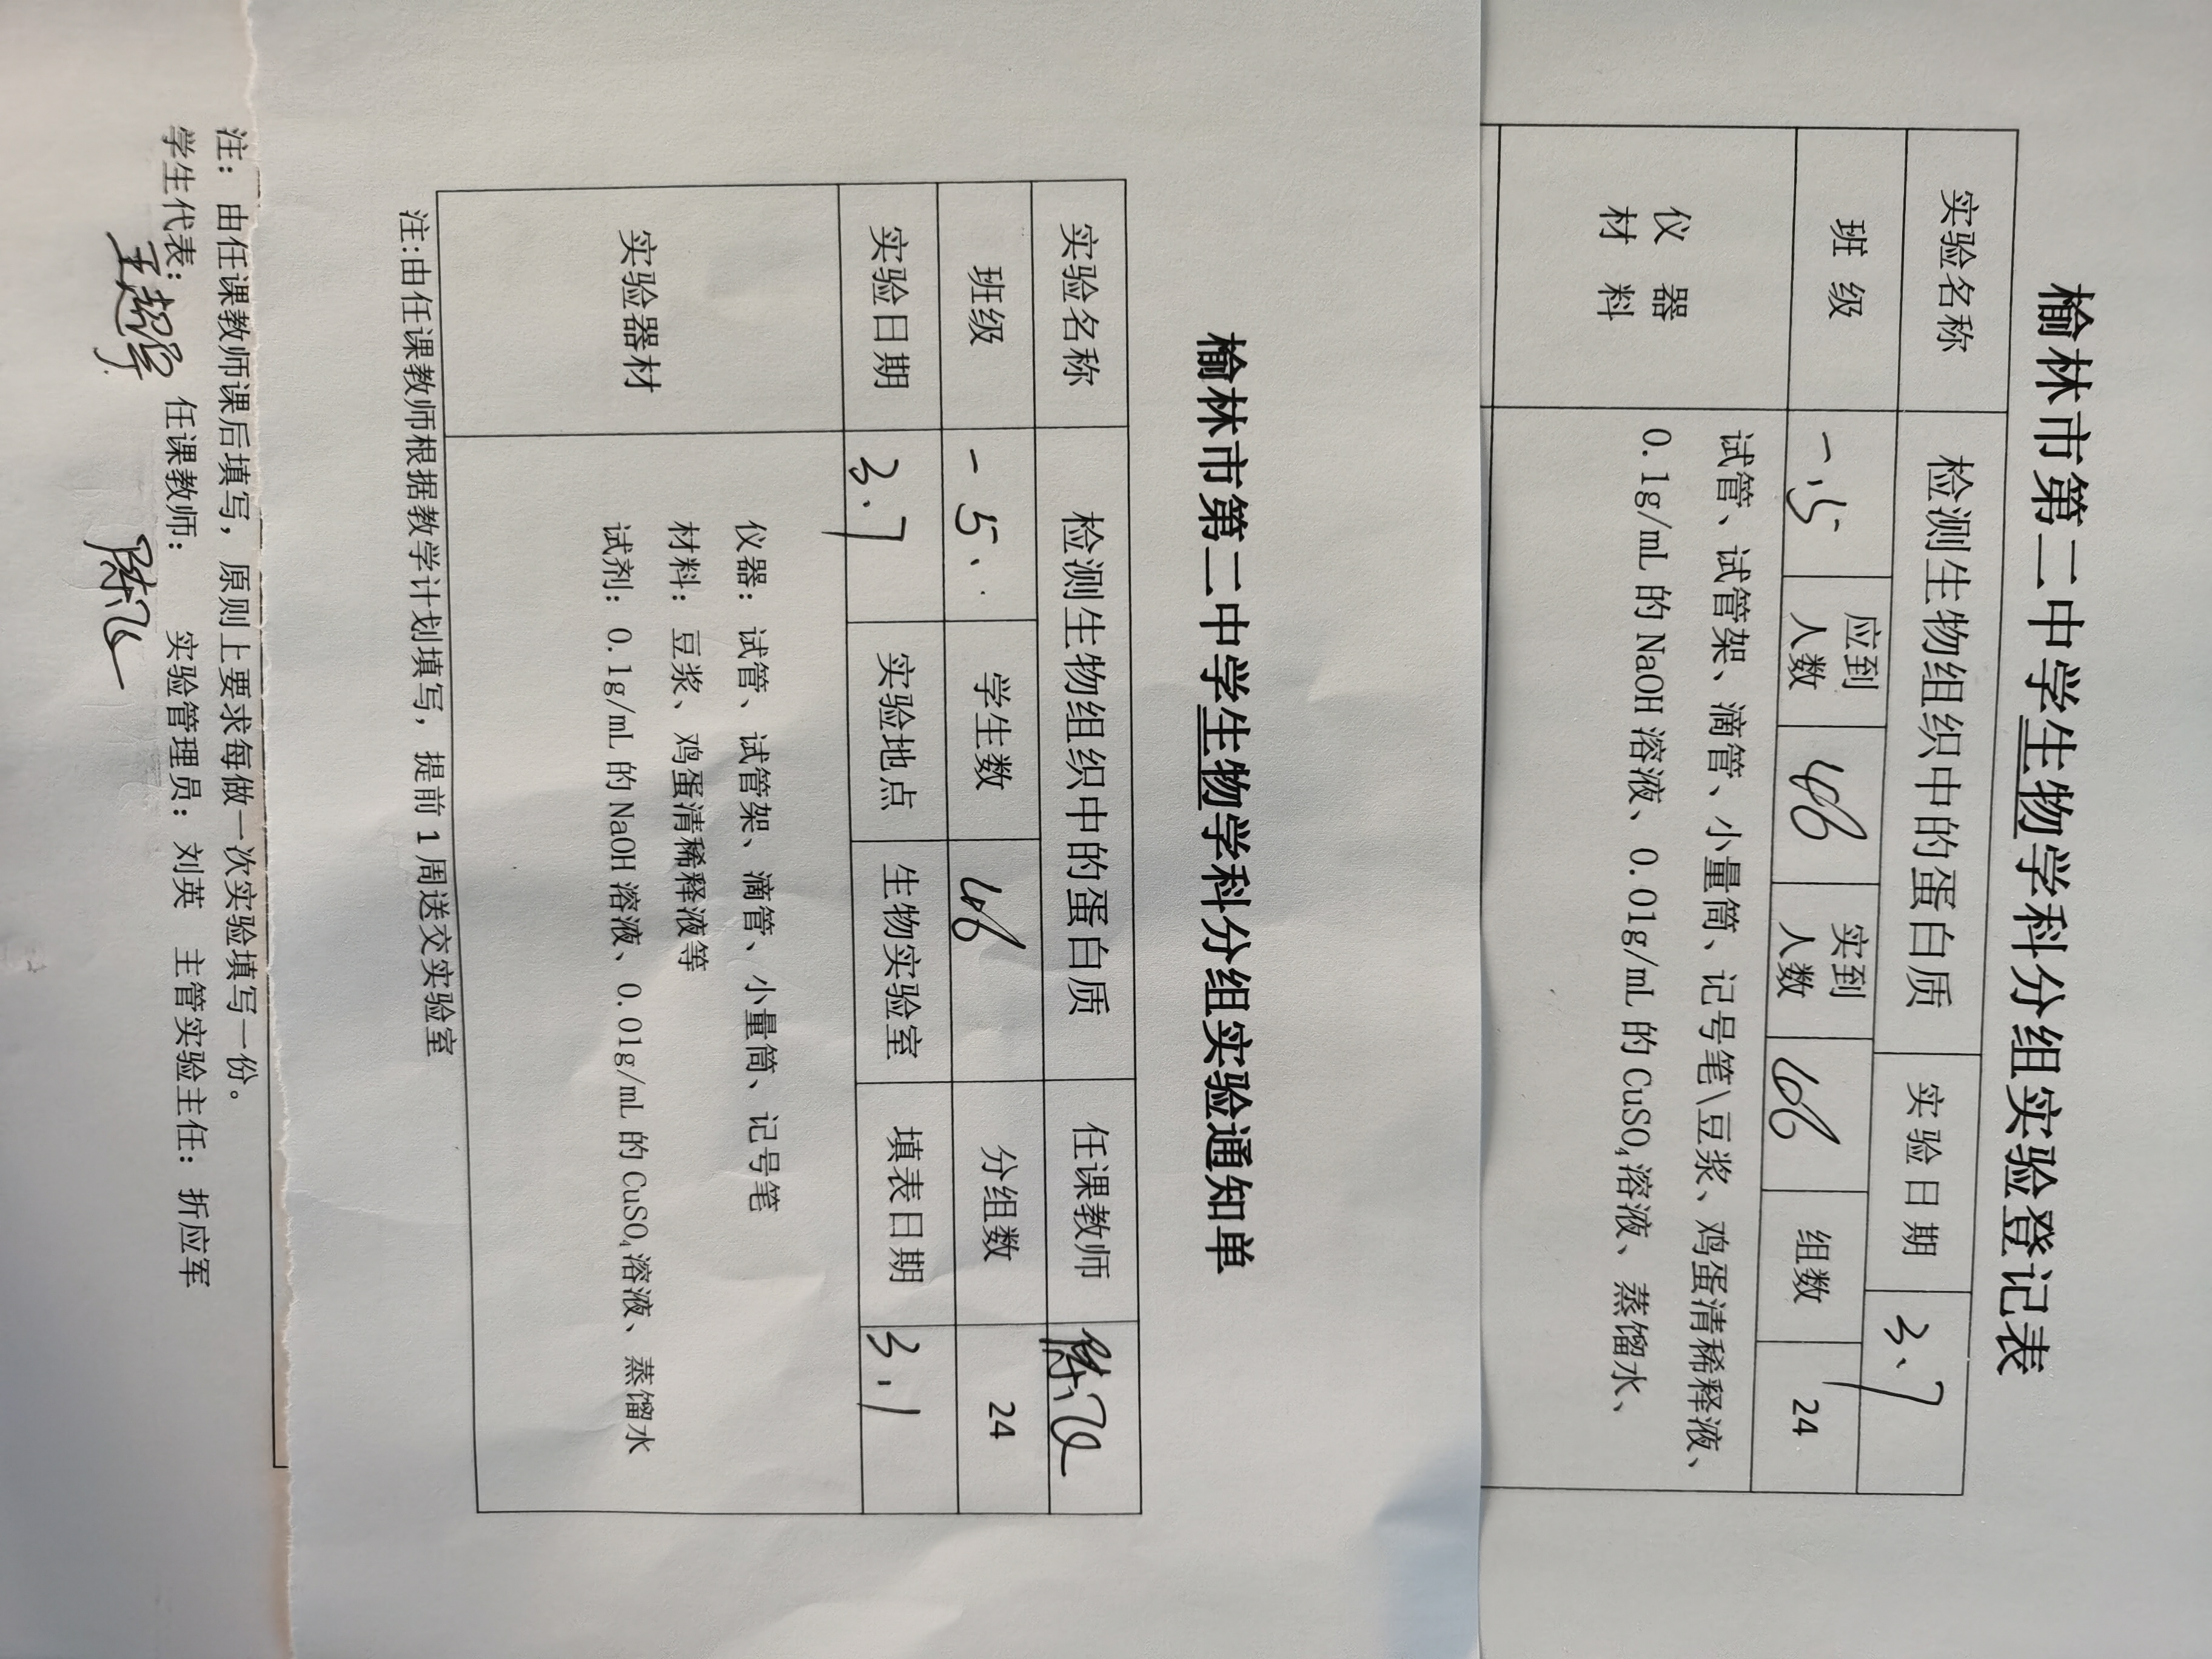 榆林市第二中学生物学科分组实验登记表
实验名称 检测生物组织中的蛋白质 实验日期 3.7
班 级 一.5 应到人数 46 实到人数 46 组数 24
仪 器 材 料
试管、试管架、滴管、小量筒、记号笔\豆浆、鸡蛋清稀释液、
0.1g/mL 的 NaOH 溶液、0.01g/mL 的 CuSO₄溶液、蒸馏水、
榆林市第二中学生物学科分组实验通知单
实验名称 检测生物组织中的蛋白质 任课教师 陈飞
班级 一5. 学生数 46 分组数 24
实验日期 3.7 实验地点 生物实验室 填表日期 3.1
实验器材
仪器：试管、试管架、滴管、小量筒、记号笔
材料：豆浆、鸡蛋清稀释液等
试剂：0.1g/mL 的 NaOH 溶液、0.01g/mL 的 CuSO₄溶液、蒸馏水
注:由任课教师根据教学计划填写，提前 1 周送交实验室
注：由任课教师课后填写，原则上要求每做一次实验填写一份。
学生代表： 任课教师： 陈飞 实验管理员：刘英 主管实验主任：折应军